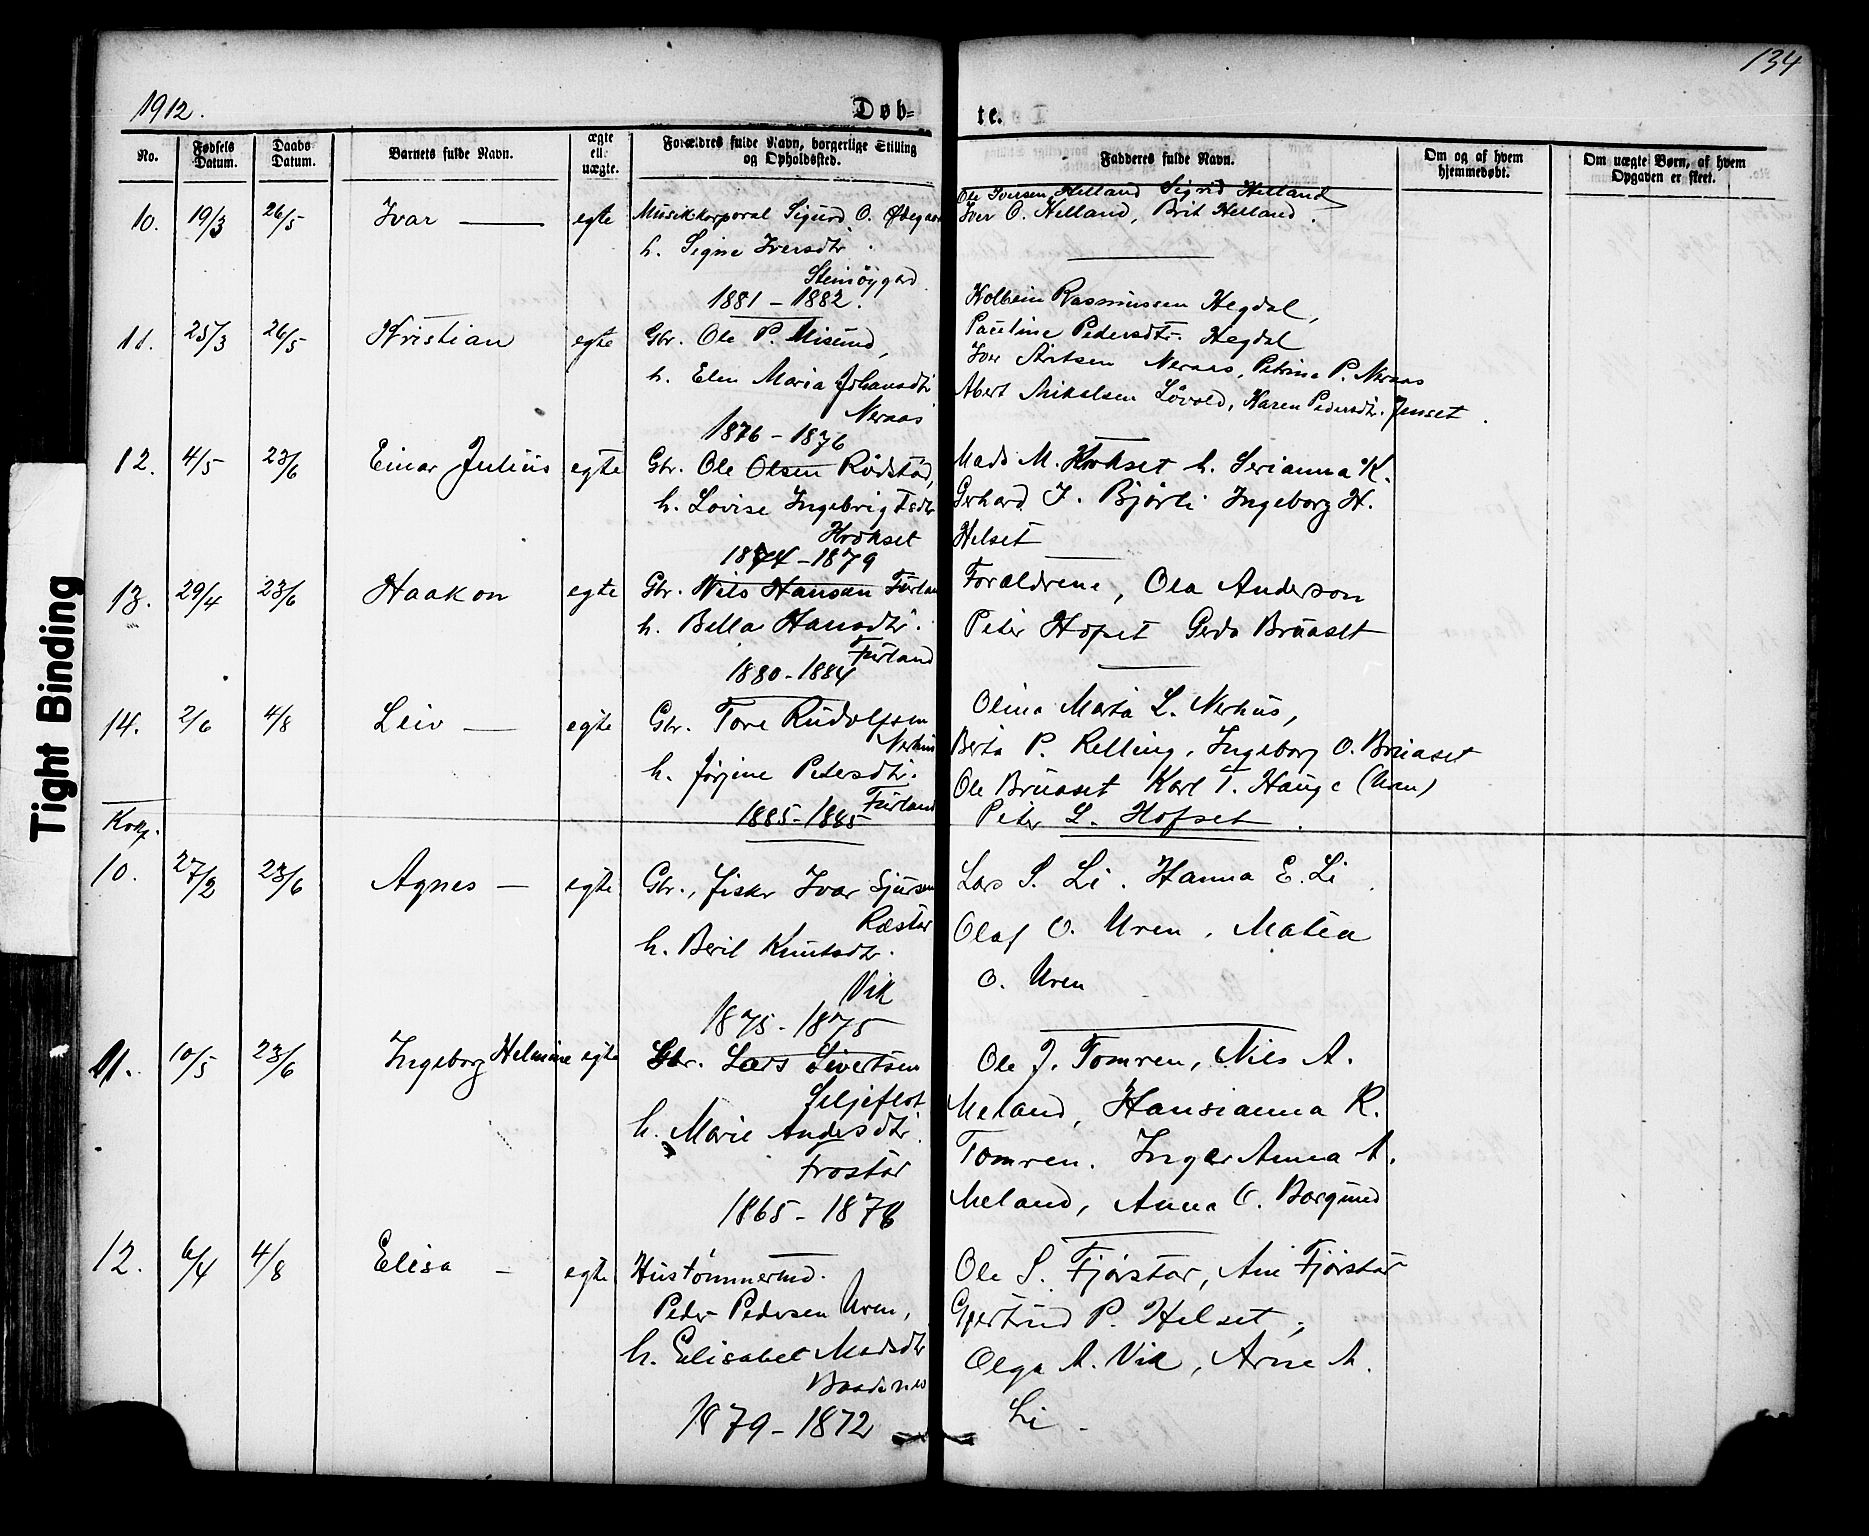 134
1912. Døb- te.
No. Fødsels Datum. Daabs Datum. Barnets fulde Navn. ægte ell. uægte. Forældres fulde Navn, borgerlige Stilling og Opholdssted. Fadderes fulde Navn. Om og af hvem hjemmedøbt. Om uægte Børn, af hvem Opgaven er skeet.
10. 19/3 26/5 Ivar — egte Musikkorporal Sigurd O. Ødegaar
h. Signe Iversdtr.
1881 - 1882.
Ole Iversen Helland Sigrid Helland
Iver O. Helland, Brit Helland.
11. 25/3 26/5 Kristian egte Gbr. Ole P. Misund,
h. Elen Maria Johansdtr
Neraas
1876 - 1876
Kolbein Rasmussen Hegdal,
Pauline Pedersdtr. Hegdal
Iver Neraas, Petrine P. Neraas
Mikelsen Løvold, Karen Pedersdtr. Jenset
12. 4/5 23/6 Einar Julius egte Gbr. Ole Olsen Rødstøl,
h. Lovise Ingebrigtsdtr
Krokset
1874 - 1879
Mads M. Krokset h. Serianna K.
Gerhard I. Bjørli Ingeborg H.
Helset
13. 29/4 23/6 Haakon egte Gbr. Nils Hansen Furlan
h. Bella Hansdtr.
Furland
1880 - 1884
Forældrene, Ola Anderson
Peter Hofset Gerda Bruaset
14. 2/6 4/8 Leiv — egte Gbr. Tore Rudolfsen
Nerhus
h. Jørgine Petersdtr.
Furland
1885 - 1885
Olina Marta L. Nerhus,
Berta P. Relling, Ingeborg O. Bruaset
Ole Bruaset Karl T. Hauge (Uren)
Peter L. Hofset.
10. 27/2 23/6 Agnes — egte Gbr., fisker Ivar Sjursen
Ræstar
h. Beril Knutsdtr.
Vik
1875 - 1875
Lars S. Li. Hanna E. Li
Olaf O. Uren, Matea
O. Uren
11. 10/5 23/6 Ingeborg Helmine egte Gbr. Lars Sivertsen
Siljeflot
h. Marie Andersdtr.
Frostar
1865 - 1876
Ole J. Tomren, Nils A.
Meland, Hansianna R.
Tomren. Inger Anna A.
Meland, Anna O. Borgund
12. 6/4 4/8 Elisa — egte Hustømmermd.
Peder Pedersen Uren,
h. Elisabet Madsdtr
Baadsnes
1879 - 1872
Ole S. Fjørstar, Ane Fjørstar
Gjertrud P. Helset,
Olga A. Vik, Arne A.
Li -
Tight Binding